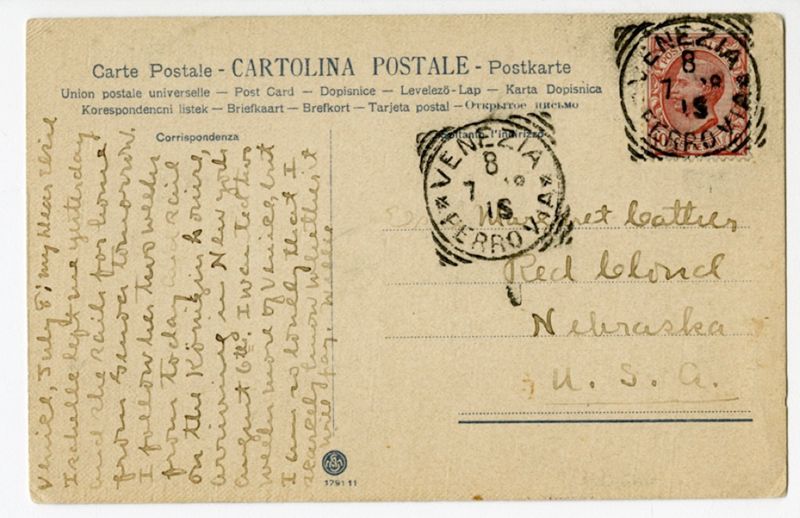 Carte Postale - CARTOLINA POSTALE - Postkarte
Union postale universelle — Post Card — Dopisnice — Levelező-Lap — Karta Dopisnica
Korespondencni listek — Briefkaart — Brefkort — Tarjeta postal — Открытое письмо
Corrispondenza
l'indirizzo
VENEZIA
8
7
15
FERROVIA
VENEZIA
8
7
15
FERROVIA
Venice, July 8; my dear Elsie
Isabelle left me yesterday
and she sails for home
from Genoa tomorrow.
I follow her two weeks
from today and sail
on the König
arriving in New York
August 6th. I wanted two
weeks more of Venice, but
I am so lonely that I
scarcely know whether it
will pay. Willie
Margaret Cather
Red Cloud
Nebraska
U. S. A.
179111